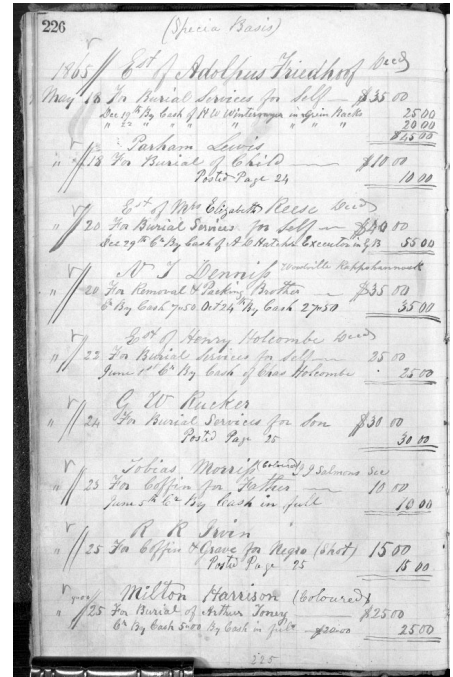 226
(Specia Basis)
1865 Est of Adolphus Friedhoof Decd
May 18 For Burial Services for Self — $35 00
Dec 19th By Cash of H W in Green Backs 25 00
" 22 " " " " " " " 20 00
$45 00
Parham Lewis
" 18 For Burial of Child — $10 00
Posted Page 24 10 00
Est of Mrs Elizabeth Reese Decd
" 20 For Burial Services for Self — $40 00
Dec 29th Cr By Cash of A C Executor in G B 55 00
N J Denniss Rappahannock
" 20 For Removal & Packing Brother — $35 00
Cr By Cash 7.50 Oct 24th By Cash 27.50 35 00
Est of Henry Holcombe Decd
" 22 For Burial Services for Self — 25 00
June 1st Cr By Cash of Chas Holcombe 25 00
G W Rucker
" 24 For Burial Services for Son $30 00
Posted Page 25 30 00
Tobias Morriss (Coloured) J Salmons Sec
" 25 For Coffin for Father — 10 00
June 5th Cr By Cash in full 10 00
R R Irvin
" 25 For Coffin & Grave for Negro (Shot) 15 00
Posted Page 25 15 00
Milton Harrison (Coloured)
" 25 For Burial of Arthur Toney $25 00
Cr By Cash 5.00 By Cash in full — $20.00 25 00
225